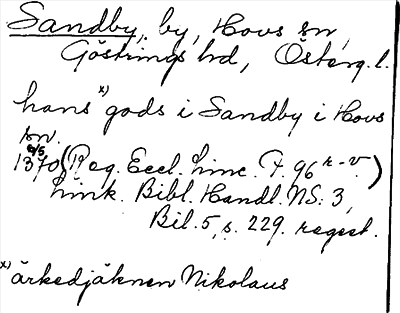 Sandby, by, Hovs sn,
Göstrings hd, Österg. l.
hans x) gods i Sandby i Hovs
sn
1370 9/5 (Reg. Eccl. Linc. F. 96 r-v.)
Link. Bibl. Handl. NS. 3,
Bil. 5, s. 229. regest.
x) ärkedjäknen Nikolaus